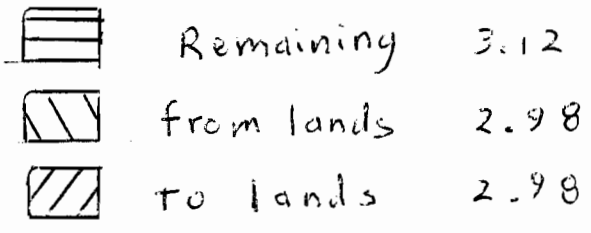 Remaining 3.12
from lands 2.98
To lands 2.98